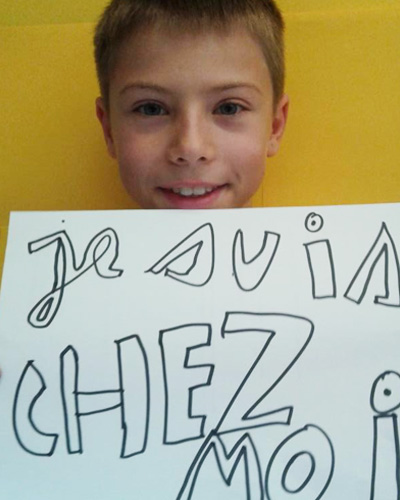 je suis
CHEZ
MOi